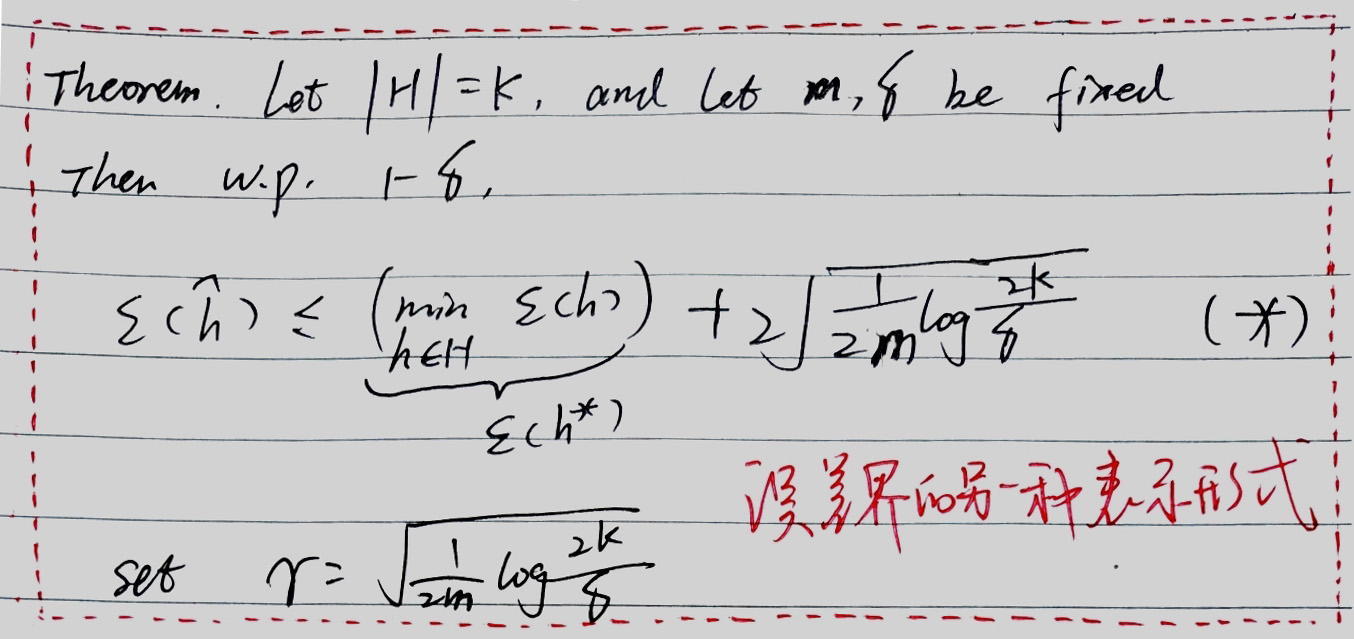 Theorem. Let |H|=k, and let m, δ be fixed
Then w.p. 1-δ,
ε(ĥ) ≤ (min_{h∈H} ε(h)) + 2√(1/2m log 2k/δ) (*)
ε(h*)
误差界的另一种表示形式
set γ = √(1/2m log 2k/δ)